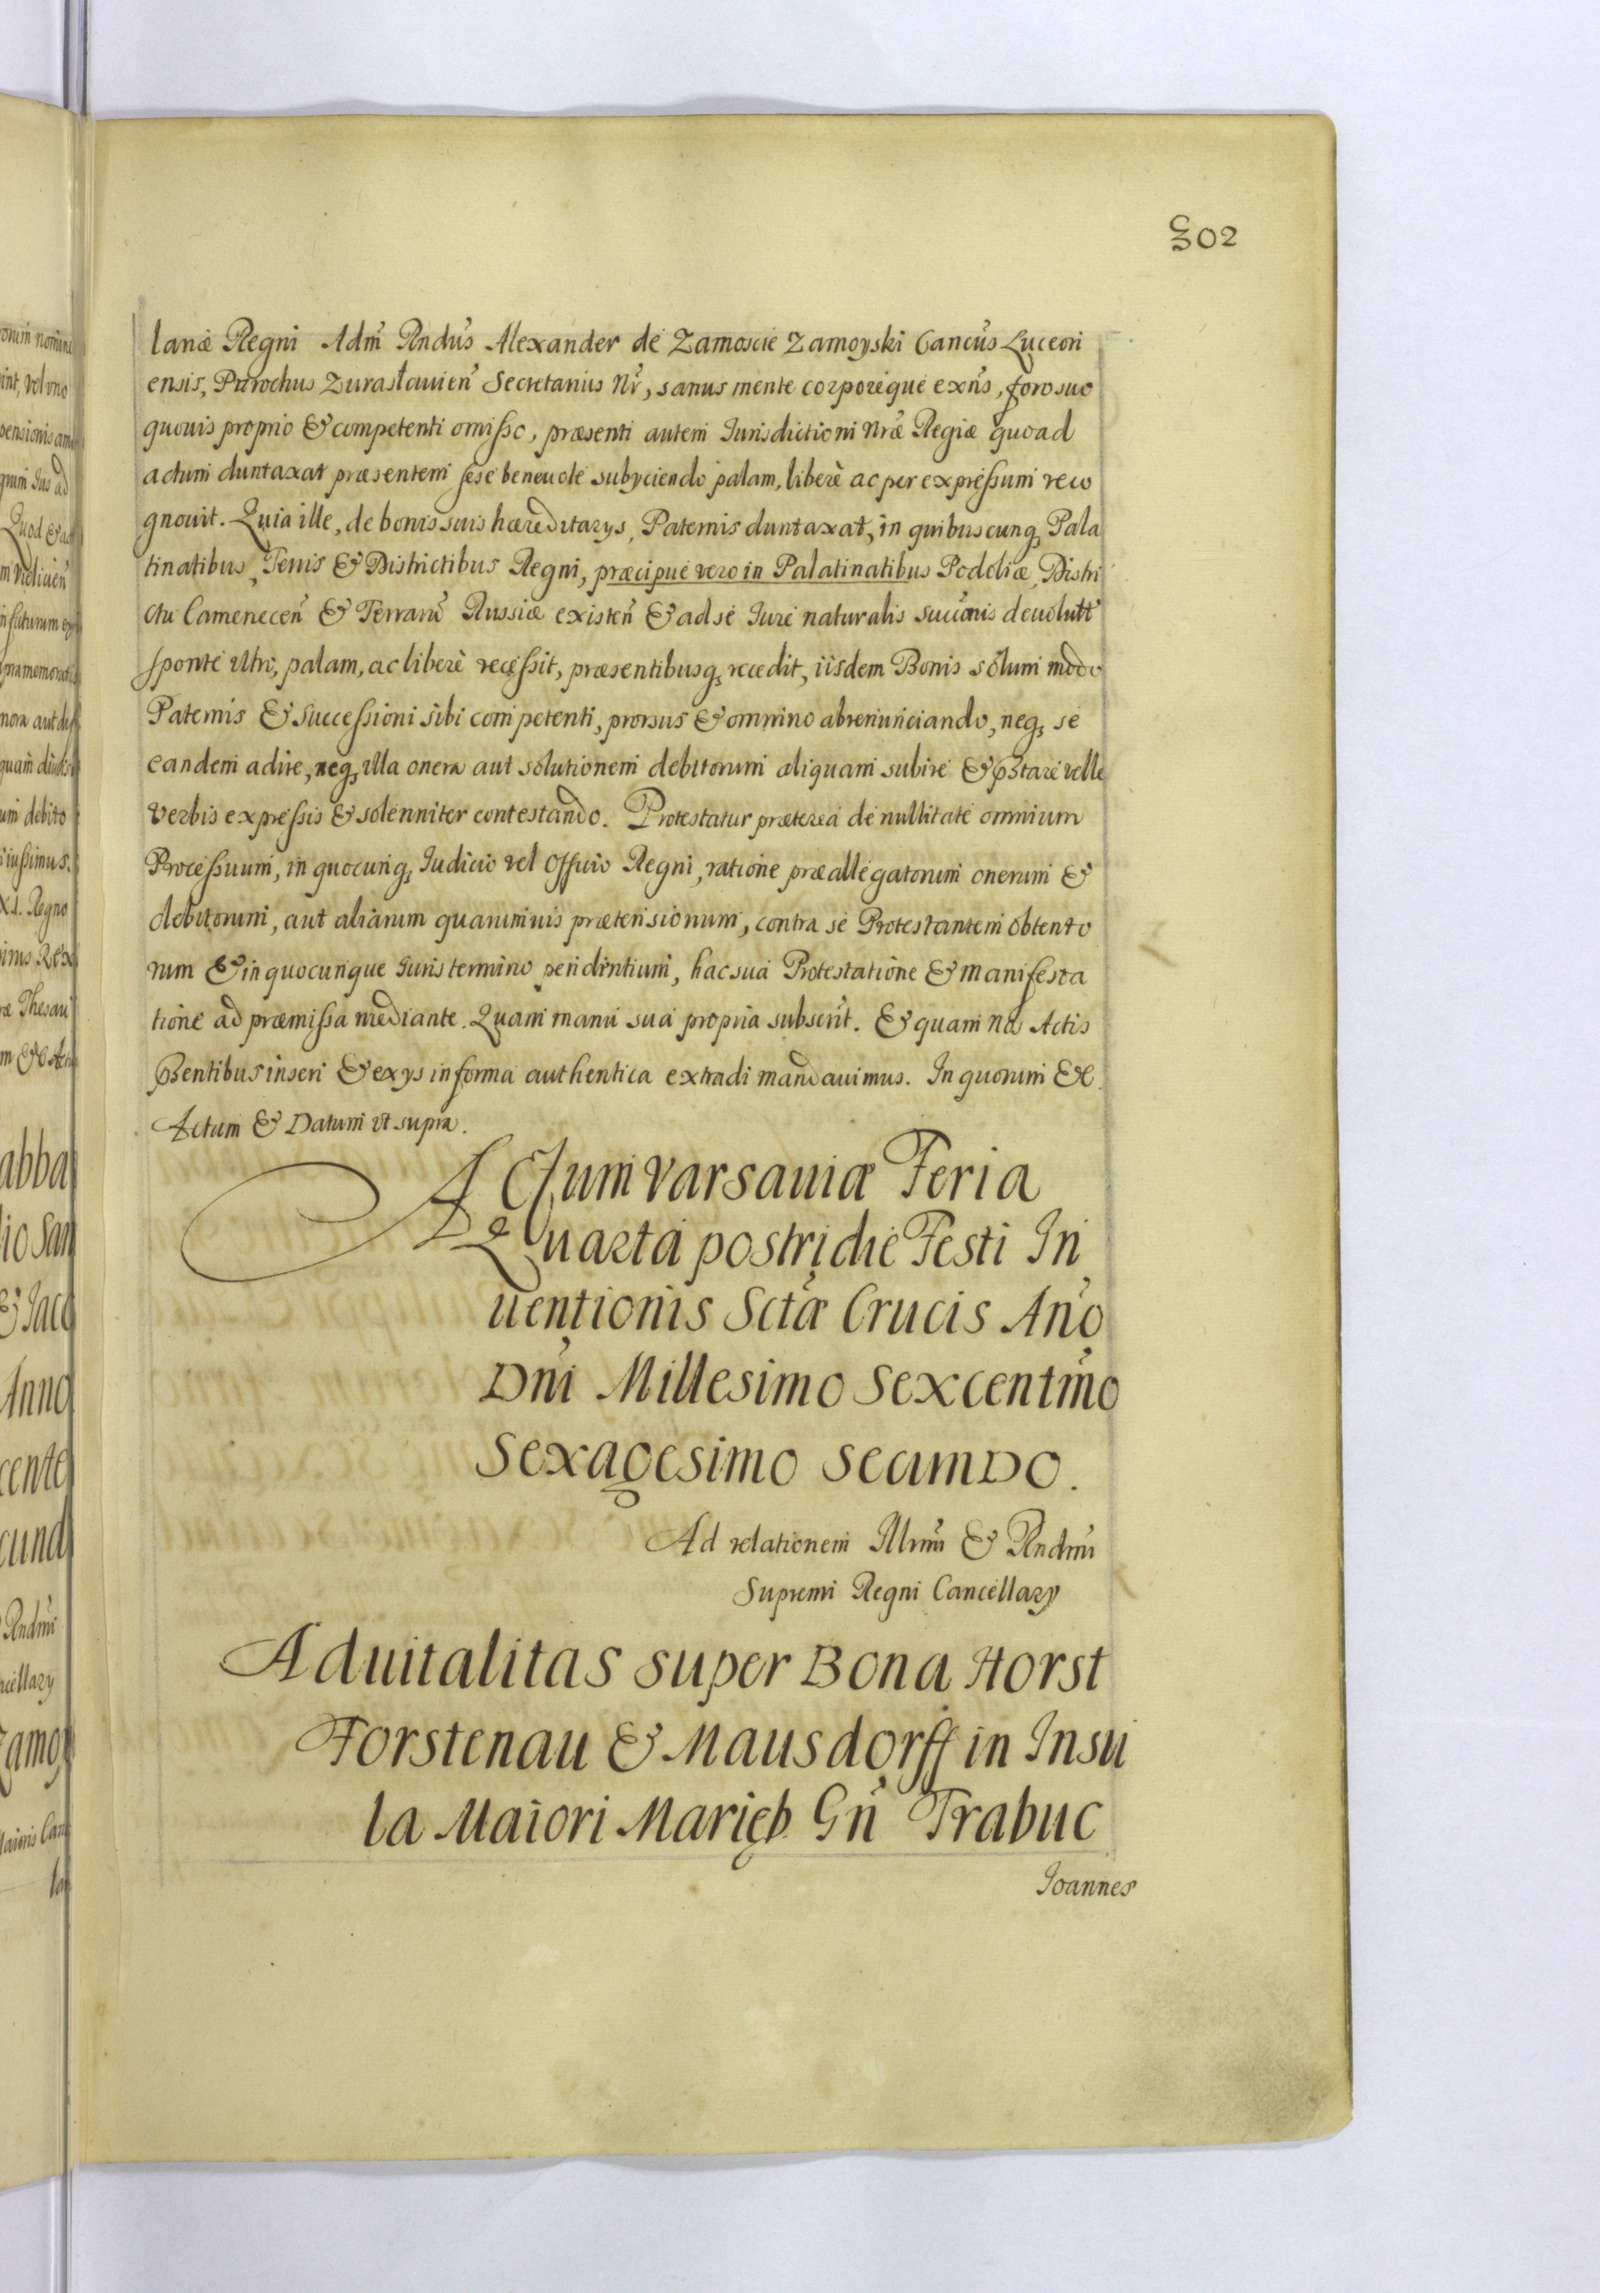 302
lanæ Regni Adm̃ Rndus Alexander de Zamoscie Zamoyski Cancus Luceori
ensis, Parochus Zurasłauien Secretarius Nr̃, sanus mente corporeque exñs, foro suo
quouis proprio & competenti omisso, præsenti autem Iurisdictioni Nræ Regiæ quoad
actum duntaxat præsentem sese beneuole subyciendo palam, liberè ac per expressum reco
gnouit. Quia ille, de bonis suis hæreditarys, Paternis duntaxat, in quibuscunq, Pala
tinatibus, Terris & Districtibus Regni, præcipue vero in Palatinatibus Podoliæ, Distri
ctu Camenecen̄ & Terrarū Russiæ existen̄ & ad se Iure naturalis succōnis deuolutt
sponte vltrò, palam, ac liberè recessit, præsentibusq, recedit, iisdem Bonis solum modo
Paternis & successioni sibi competenti, prorsus & omnino abrenunciando, neq, se
eandem adire, neq, vlla onera aut solutionem debitorum aliquam subire & Pstare velle
verbis expressis & solenniter contestando. Protestatur præterea de nullitate omnium
Processuum, in quocunq, Iudicio vel Officio Regni, ratione præallegatorum onerum &
debitorum, aut aliarum quarumuis prætensionum, contra se Protestantem obtento
rum & in quocunque Iuris termino pendentium, hac sua Protestatione & manifesta
tione ad præmissa mediante. Quam manu sua propria subscrit. & quam Nos Actis
Psentibus inseri & ex ys in forma authentica extradi mandauimus. In quorum &c.
Actum & Datum vt supra.
Actum Varsauiæ Feria
Quarta postridie Festi In
uentionis Sctæ Crucis Año
Dñi Millesimo Sexcentmo
Sexagesimo Secundo.
Ad relationem Illrmi & Rndmi
Supremi Regni Cancellary
Aduitalitas super Bona Horst
Forstenau & Mausdorff in Insu
la Maiori Marieb. Gñ Trabuc
Joannes